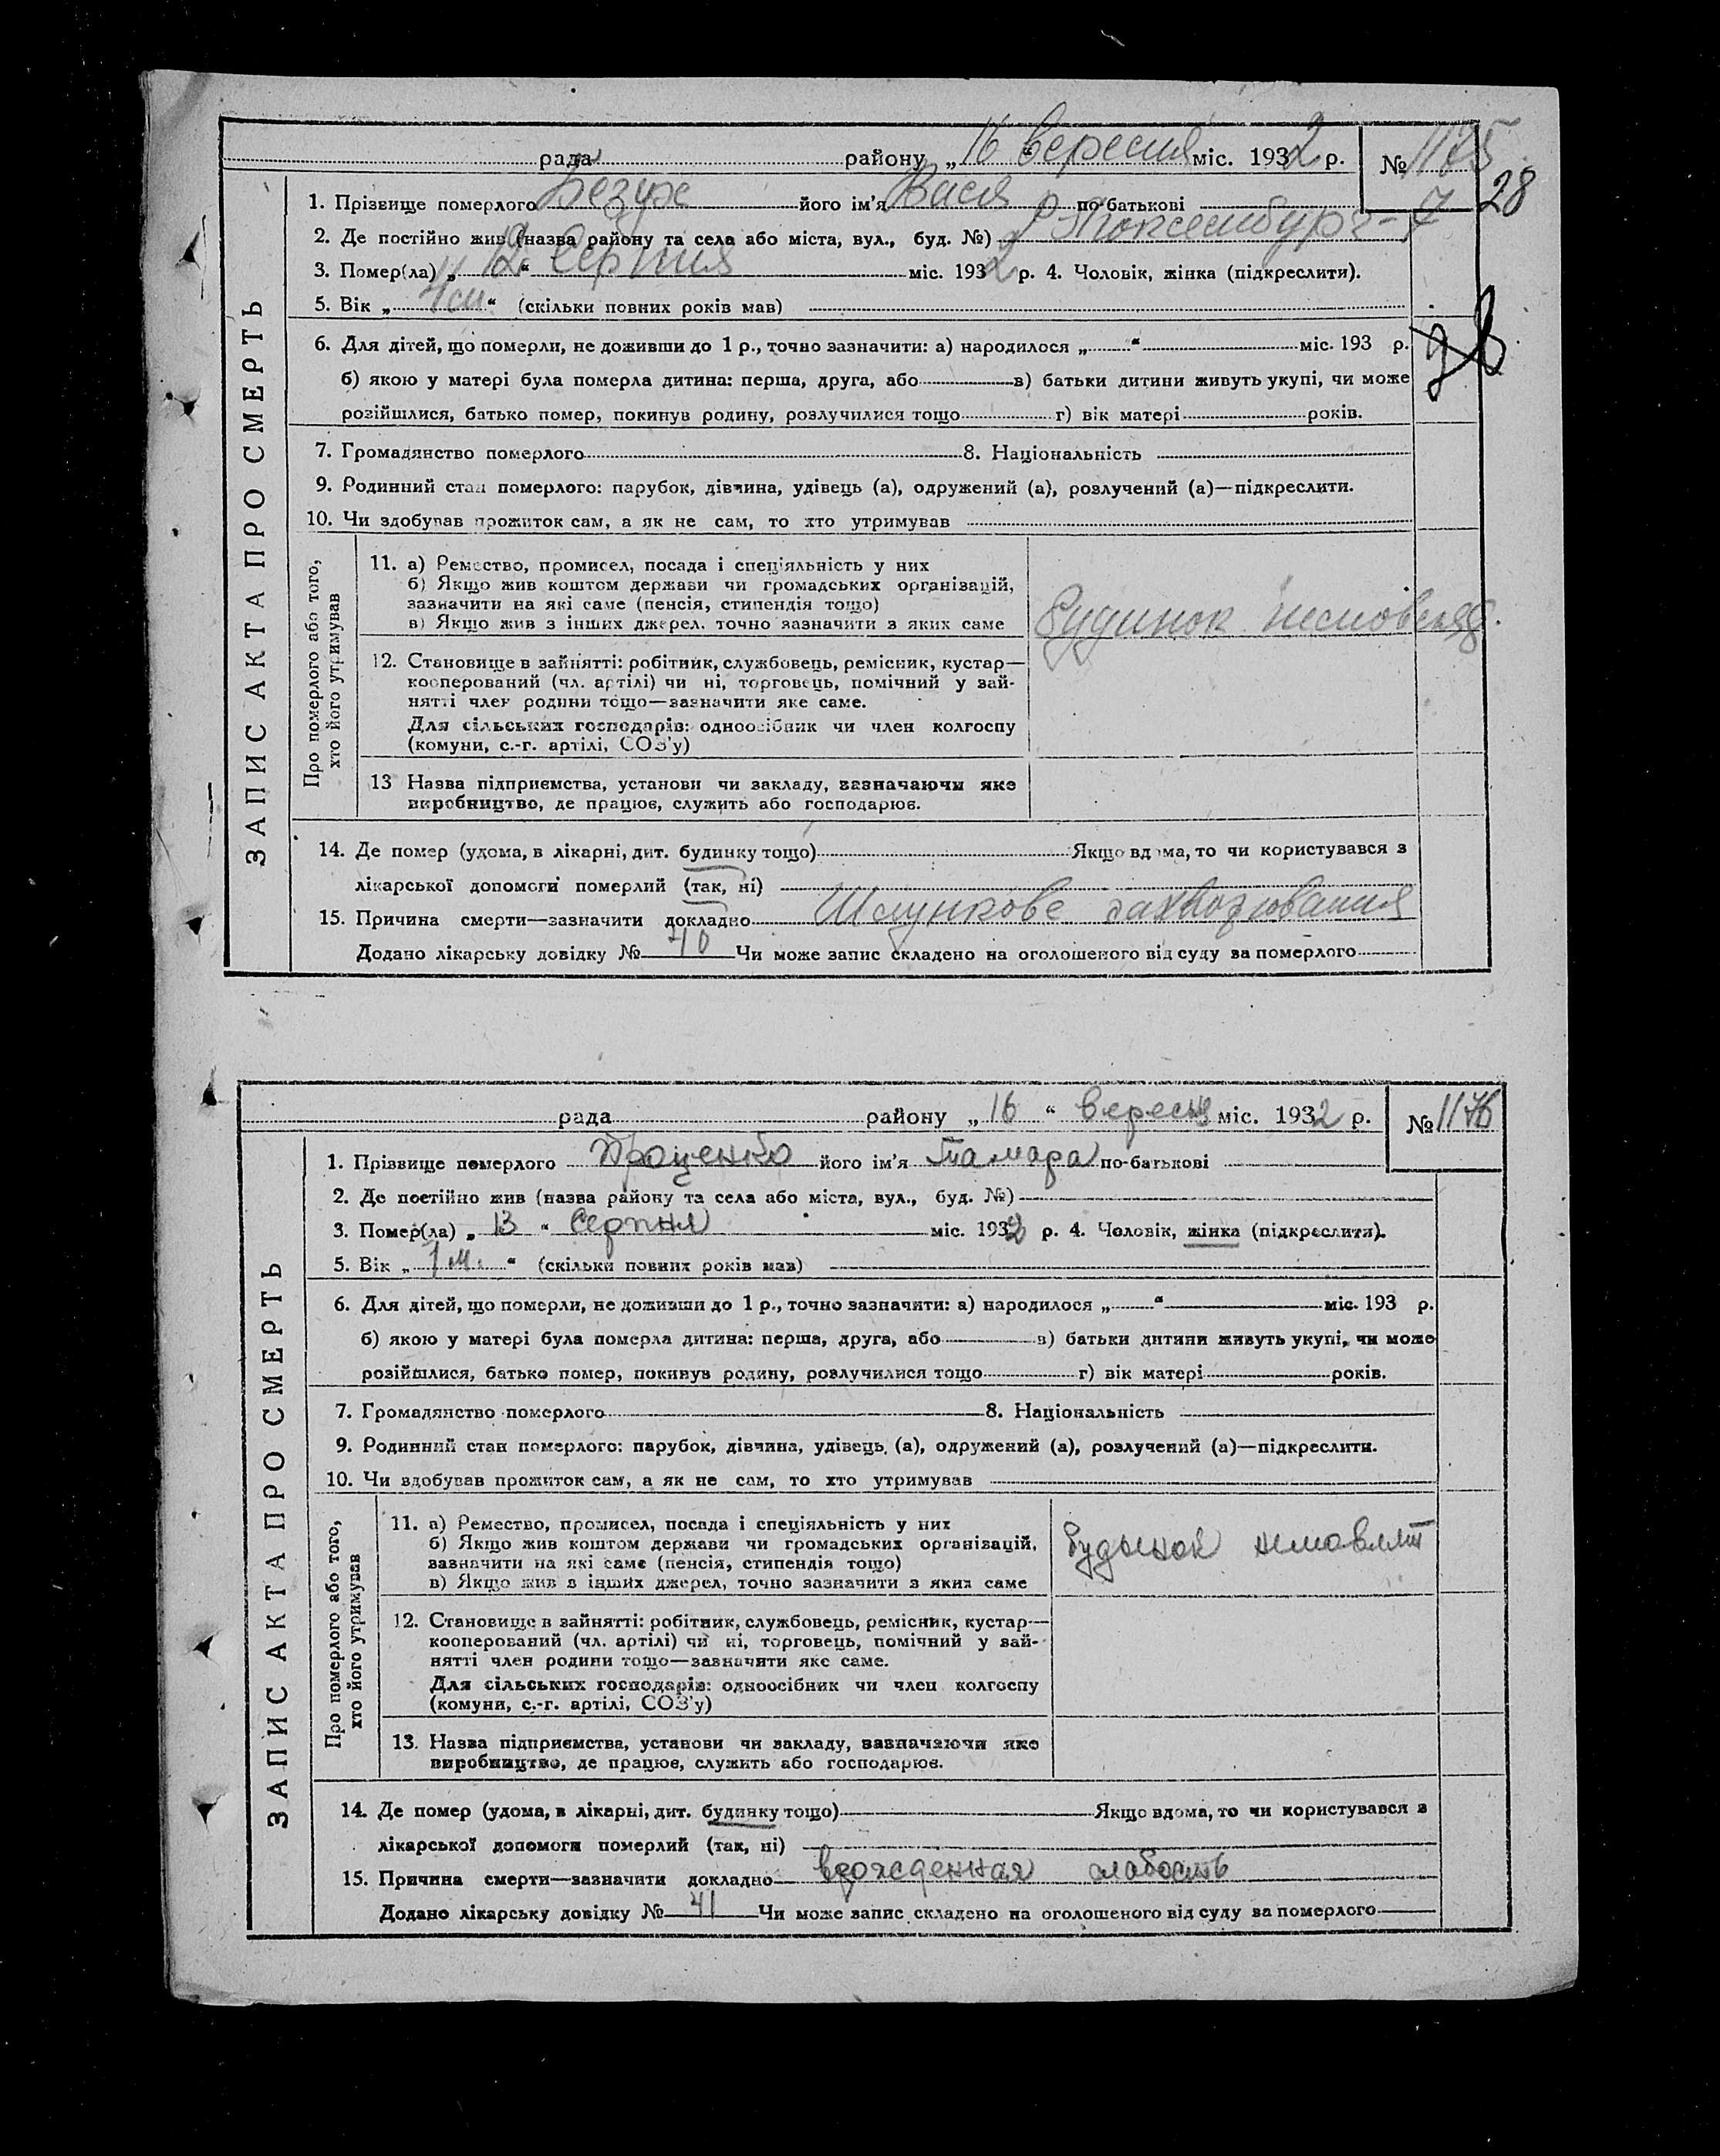 рада району „16“ вересня міс. 1932 р. № 1175
28
1. Прізвище померлого Безух його ім’я Вася по-батькові
2. Де постійно жив (назва району та села або міста, вул., буд. №) Р. Люксембург - 7
3. Помер(ла) „12“ Серпня міс. 1932 р. 4. Чоловік, жінка (підкреслити).
5. Вік „ “ (скільки повних років мав)
6. Для дітей, що померли, не доживши до 1 р., точно зазначити: а) народилося „ “ міс. 193 р.
б) якою у матері була померла дитина: перша, друга, або в) батьки дитини живуть укупі, чи може
розійшлися, батько помер, покинув родину, розлучилися тощо г) вік матері років.
7. Громадянство померлого 8. Національність
9. Родинний стан померлого: парубок, дівчина, удівець (а), одружений (а), розлучений (а)—підкреслити.
10. Чи здобував прожиток сам, а як не сам, то хто утримував
ЗАПИС АКТА ПРО СМЕРТЬ
Про померлого або того, хто його утримував
11. а) Ремество, промисел, посада і спеціяльність у них
б) Якщо жив коштом держави чи громадських організацій,
зазначити на які саме (пенсія, стипендія тощо)
в) Якщо жив з інших джерел, точно зазначити з яких саме
Будинок немовлят
12. Становище в зайнятті: робітник, службовець, ремісник, кустар—
кооперований (чл. артілі) чи ні, торговець, помічний у зай-
нятті член родини тощо—зазначити яке саме.
Для сільських господарів: одноосібник чи член колгоспу
(комуни, с.-г. артілі, СОЗ’у)
13 Назва підприємства, установи чи закладу, зазначаючи яке
виробництво, де працює, служить або господарює.
14. Де помер (удома, в лікарні, дит. будинку тощо) Якщо вдома, то чи користувався з
лікарської допомоги померлий (так, ні)
15. Причина смерти—зазначити докладно Шлункове захворювання
Додано лікарську довідку № 40 Чи може запис складено на оголошеного від суду за померлого
рада району „16“ вересня міс. 1932 р. № 1176
1. Прізвище померлого Проценко його ім’я Тамара по-батькові
2. Де постійно жив (назва району та села або міста, вул., буд. №)
3. Помер(ла) „13“ Серпня міс. 1932 р. 4. Чоловік, жінка (підкреслити).
5. Вік „1 м.“ (скільки повних років мав)
6. Для дітей, що померли, не доживши до 1 р., точно зазначити: а) народилося „ “ міс. 193 р.
б) якою у матері була померла дитина: перша, друга, або в) батьки дитини живуть укупі, чи може
розійшлися, батько помер, покинув родину, розлучилися тощо г) вік матері років.
7. Громадянство померлого 8. Національність
9. Родинний стан померлого: парубок, дівчина, удівець (а), одружений (а), розлучений (а)—підкреслити.
10. Чи здобував прожиток сам, а як не сам, то хто утримував
ЗАПИС АКТА ПРО СМЕРТЬ
Про померлого або того, хто його утримував
11. а) Ремество, промисел, посада і спеціяльність у них
б) Якщо жив коштом держави чи громадських організацій,
зазначити на які саме (пенсія, стипендія тощо)
в) Якщо жив з інших джерел, точно зазначити з яких саме
Будынок немовлят
12. Становище в зайнятті: робітник, службовець, ремісник, кустар—
кооперований (чл. артілі) чи ні, торговець, помічний у зай-
нятті член родини тощо—зазначити яке саме.
Для сільських господарів: одноосібник чи член колгоспу
(комуни, с.-г. артілі, СОЗ’у)
13. Назва підприємства, установи чи закладу, зазначаючи яке
виробництво, де працює, служить або господарює.
14. Де помер (удома, в лікарні, дит. будинку тощо) Якщо вдома, то чи користувався з
лікарської допомоги померлий (так, ні)
15. Причина смерти—зазначити докладно врожденная слабость
Додано лікарську довідку № 41 Чи може запис складено на оголошеного від суду за померлого